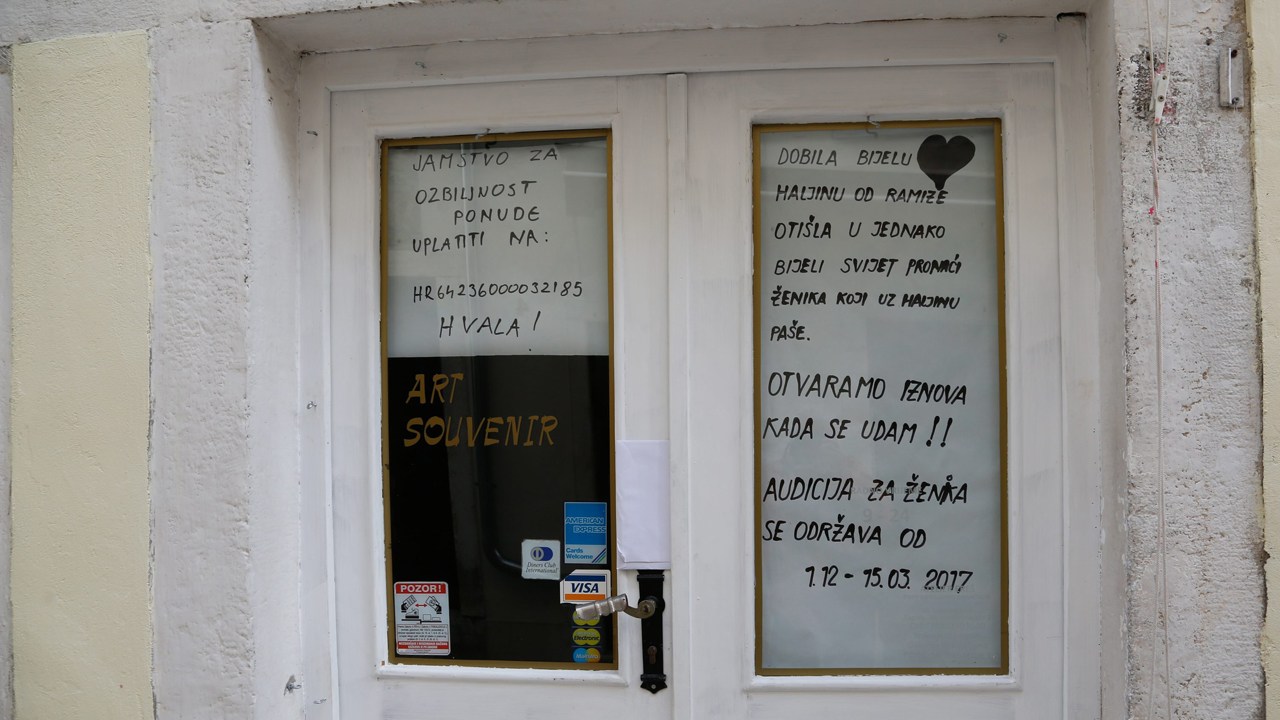 JAMSTVO ZA
OZBILJNOST
PONUDE
UPLATITI NA:
HR64236000032185
HVALA!
ART
SOUVENIR
AMERICAN
EXPRESS
Cards
Welcome
Diners Club
International
VISA
POZOR!
Electronic
DOBILA BIJELU
HALJINU OD RAMIZE
OTIŠLA U JEDNAKO
BIJELI SVIJET PRONAĆI
ŽENIKA KOJI UZ HALJINU
PAŠE.
OTVARAMO IZNOVA
KADA SE UDAM !!
AUDICIJA ZA ŽENIKA
SE ODRŽAVA OD
1.12 - 15.03. 2017